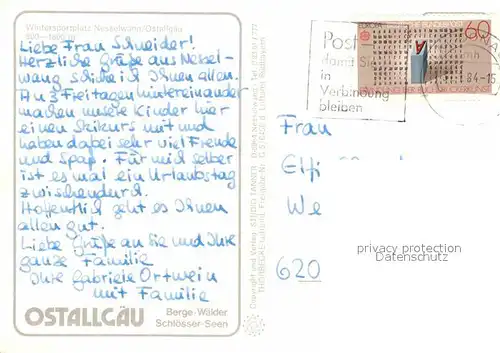 Wintersportplatz Nesselwang/Ostallgäu
Liebe Frau Schneider!
Herzliche Grüße aus Nessel-
wang schicke ich Ihnen allen.
An 3 Freitagen hintereinander
machen unsere Kinder hier
einen Skikurs mit und
haben dabei sehr viel Freude
und Spaß. Für mich selber
ist es mal ein Urlaubstag
zwischendurch.
Hoffentlich geht es Ihnen
allen gut.
Liebe Grüße an Sie und Ihre
ganze Familie
Ihre Gabriele Ortwein
mit Familie
OSTALLGÄU
Berge·Wälder
Schlösser·Seen
Copyright und Verlag
EUROPA
60
Post
damit Sie
in
Verbindung
bleiben
84-15
Frau
We
620
privacy protection
Datenschutz